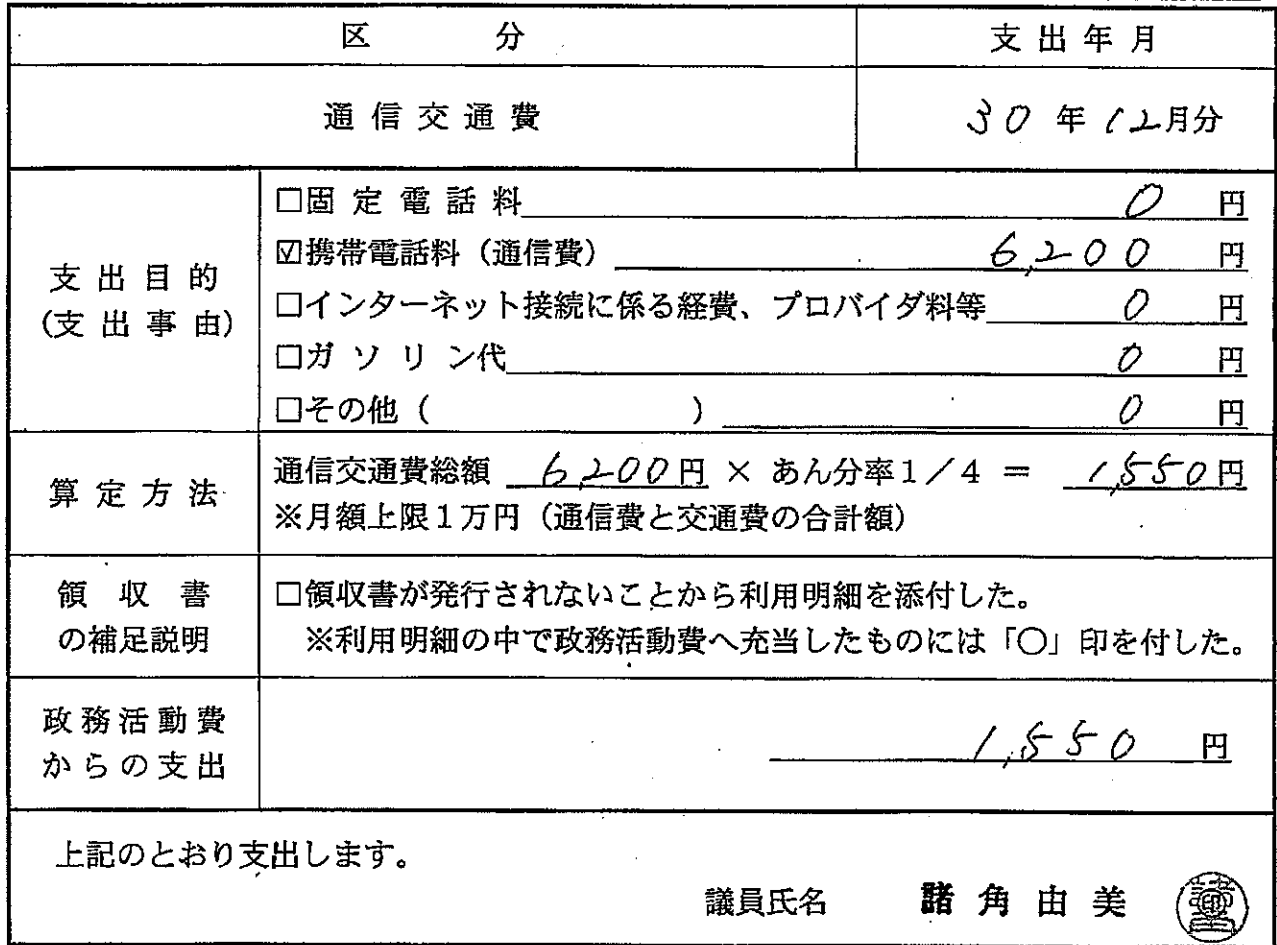 区分 支出年月
通信交通費 30年12月分
支出目的
(支出事由)
□固定電話料 0 円
☑携帯電話料（通信費） 6,200 円
□インターネット接続に係る経費、プロバイダ料等 0 円
□ガソリン代 0 円
□その他（ ） 0 円
算定方法
通信交通費総額 6,200円 × あん分率1／4 ＝ 1,550円
※月額上限1万円（通信費と交通費の合計額）
領収書
の補足説明
□領収書が発行されないことから利用明細を添付した。
※利用明細の中で政務活動費へ充当したものには「○」印を付した。
政務活動費
からの支出
1,550 円
上記のとおり支出します。
議員氏名 諸角由美